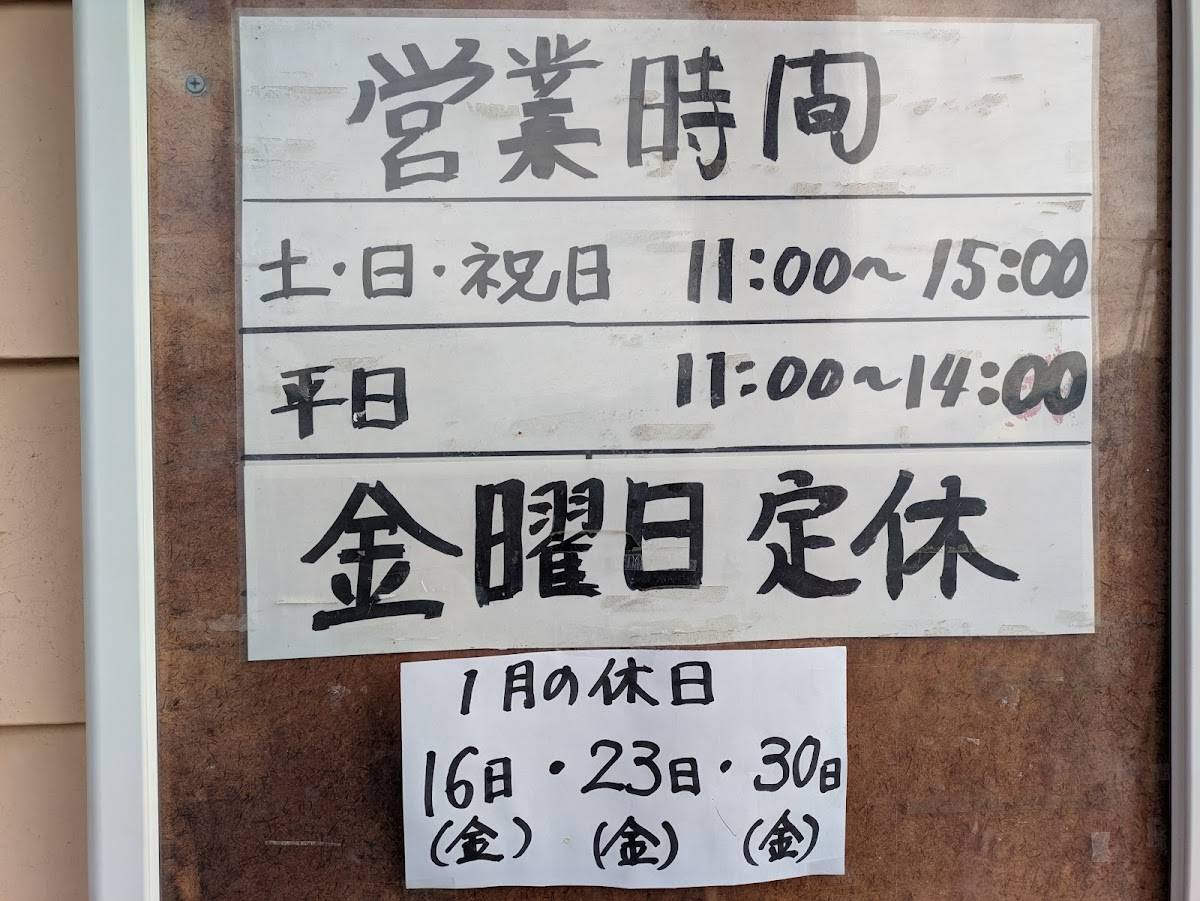 営業時間
土・日・祝日 11:00〜15:00
平日 11:00〜14:00
金曜日定休
1月の休日
16日・23日・30日
(金) (金) (金)